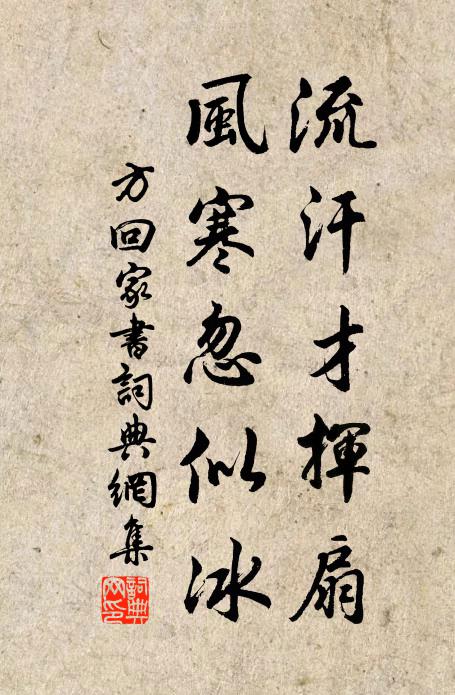 流汗才揮扇
風寒忽似冰
方回家書詞典網集
詞典